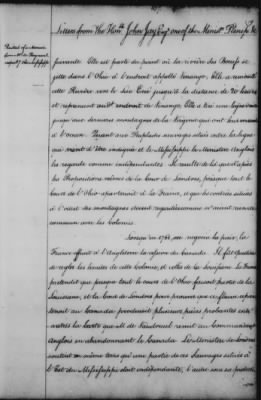 Letters from The Hon.ble John Jay Esq.r one of the Minis.rs Plenip.y &c
parende. Elle est partie du point où la rivière du Boeuf se
jette dans l'Ohio à l'endroit appellé Venango. Elle a remonté
cette Rivière vers le Lac Erié jusqu'à la distance de 20 lieues
et reprenant au endroit de Venango. Elle a tiré une ligne
jusqu'aux dernières montagnes de la Virginie qui ont leur
à l'ocean. Quant aux Peuplades sauvages situées entre la ligne
qui vient d'être indiquée et le Mississippi le Ministère Anglais
les regarde comme indépendantes. Il resulte delà que d'après
les Propositions mêmes de la Cour de Londres, presque tout le
Cours de l'Ohio appartenoit à la France, et que les contrées situées
à l'ouest des montagnes étoient regardées comme n'ayant rien de
commun avec les Colonies.
Lorsqu'en 1761, on negocia la paix, la
France offroit à l'Angleterre la cession du Canada. Il fut question
de regler les limites de cette Colonie, et celles de la Louisiane. La France
pretendit que presque tout le cours de l'Ohio faisoit partie de la
Louisiane, et la Cour de Londres pour prouver que ce fleuve appar-
tenoit au Canada produisit plusieurs pièces probantes entr'
autres la Carte que M. de Vaudreuil remit au Commandant
Anglois en abandonnant le Canada. Le Ministère de Londres
soutint en même tems qu'une partie des Sauvages situées à
l'Est du Mississippi étoit indépendante, l'autre sous sa protection